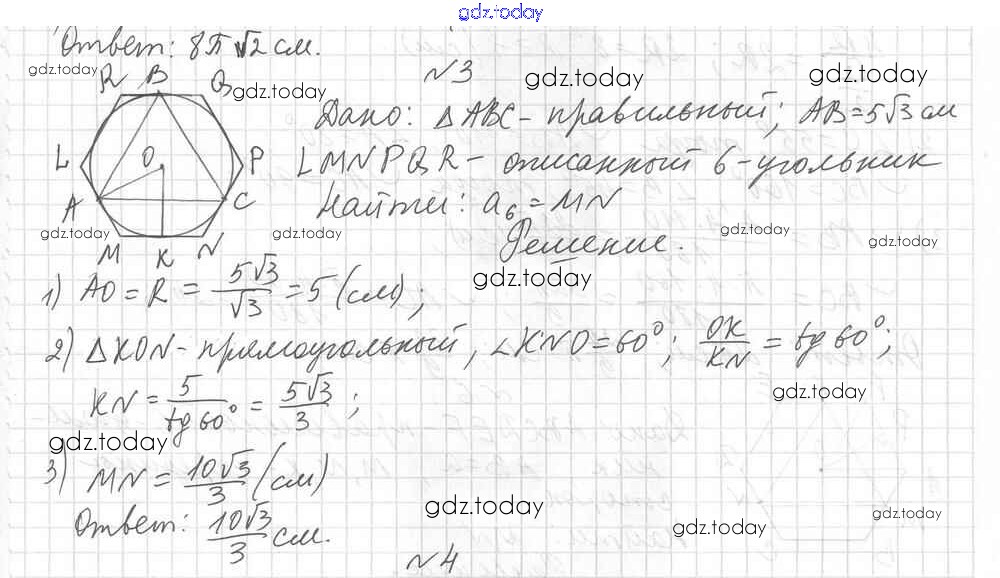 gdz.today
Ответ: 8π√2 см.
gdz.today
№3
gdz.today
gdz.today
R B Q
gdz.today
Дано: △ABC - правильный; AB = 5√3 см
L O P
LMNPQR - описанный 6-угольник
A C
Найти: a₆ = MN
gdz.today
gdz.today
gdz.today
gdz.today
M K N
Решение.
gdz.today
1) AO = R = 5√3/√3 = 5 (см);
2) △KON - прямоугольный, ∠KNO = 60°; OK/KN = tg 60°;
gdz.today
KN = 5/tg 60° = 5√3/3;
gdz.today
3) MN = 10√3/3 (см)
gdz.today
gdz.today
gdz.today
Ответ: 10√3/3 см.
№4